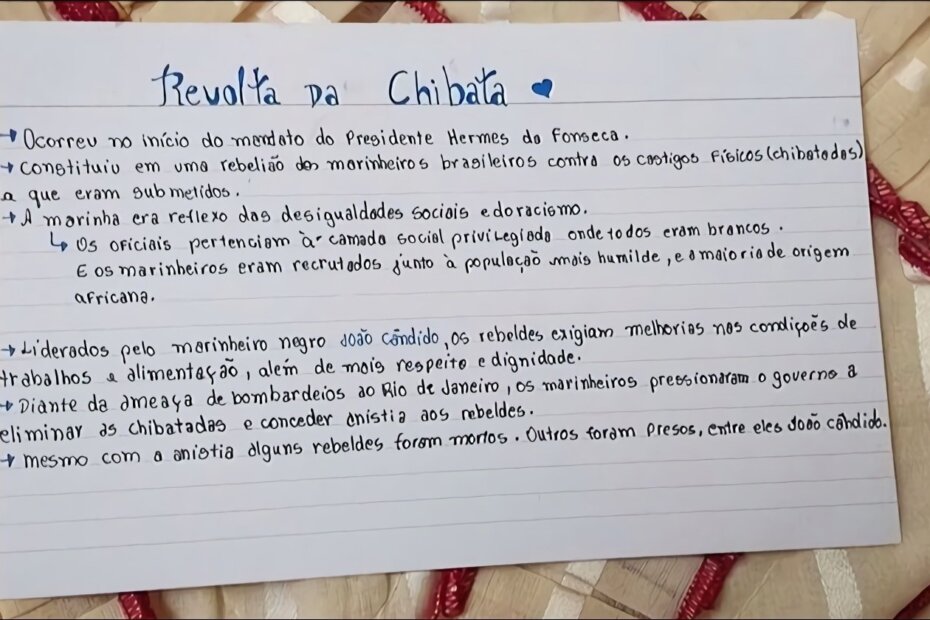 Revolta da Chibata
→ Ocorreu no início do mandato do Presidente Hermes da Fonseca.
→ Constituiu em uma rebelião dos marinheiros brasileiros contra os castigos físicos (chibatadas)
a que eram submetidos.
→ A marinha era reflexo das desigualdades sociais e do racismo.
↳ Os oficiais pertenciam à camada social privilegiada onde todos eram brancos.
E os marinheiros eram recrutados junto à população mais humilde, e a maioria de origem
africana.
→ Liderados pelo marinheiro negro João cândido, os rebeldes exigiam melhorias nas condições de
trabalhos e alimentação, além de mais respeito e dignidade.
→ Diante da ameaça de bombardeios ao Rio de Janeiro, os marinheiros pressionaram o governo a
eliminar as chibatadas e conceder anistia aos rebeldes.
→ mesmo com a anistia alguns rebeldes foram mortos. Outros foram presos, entre eles João cândido.